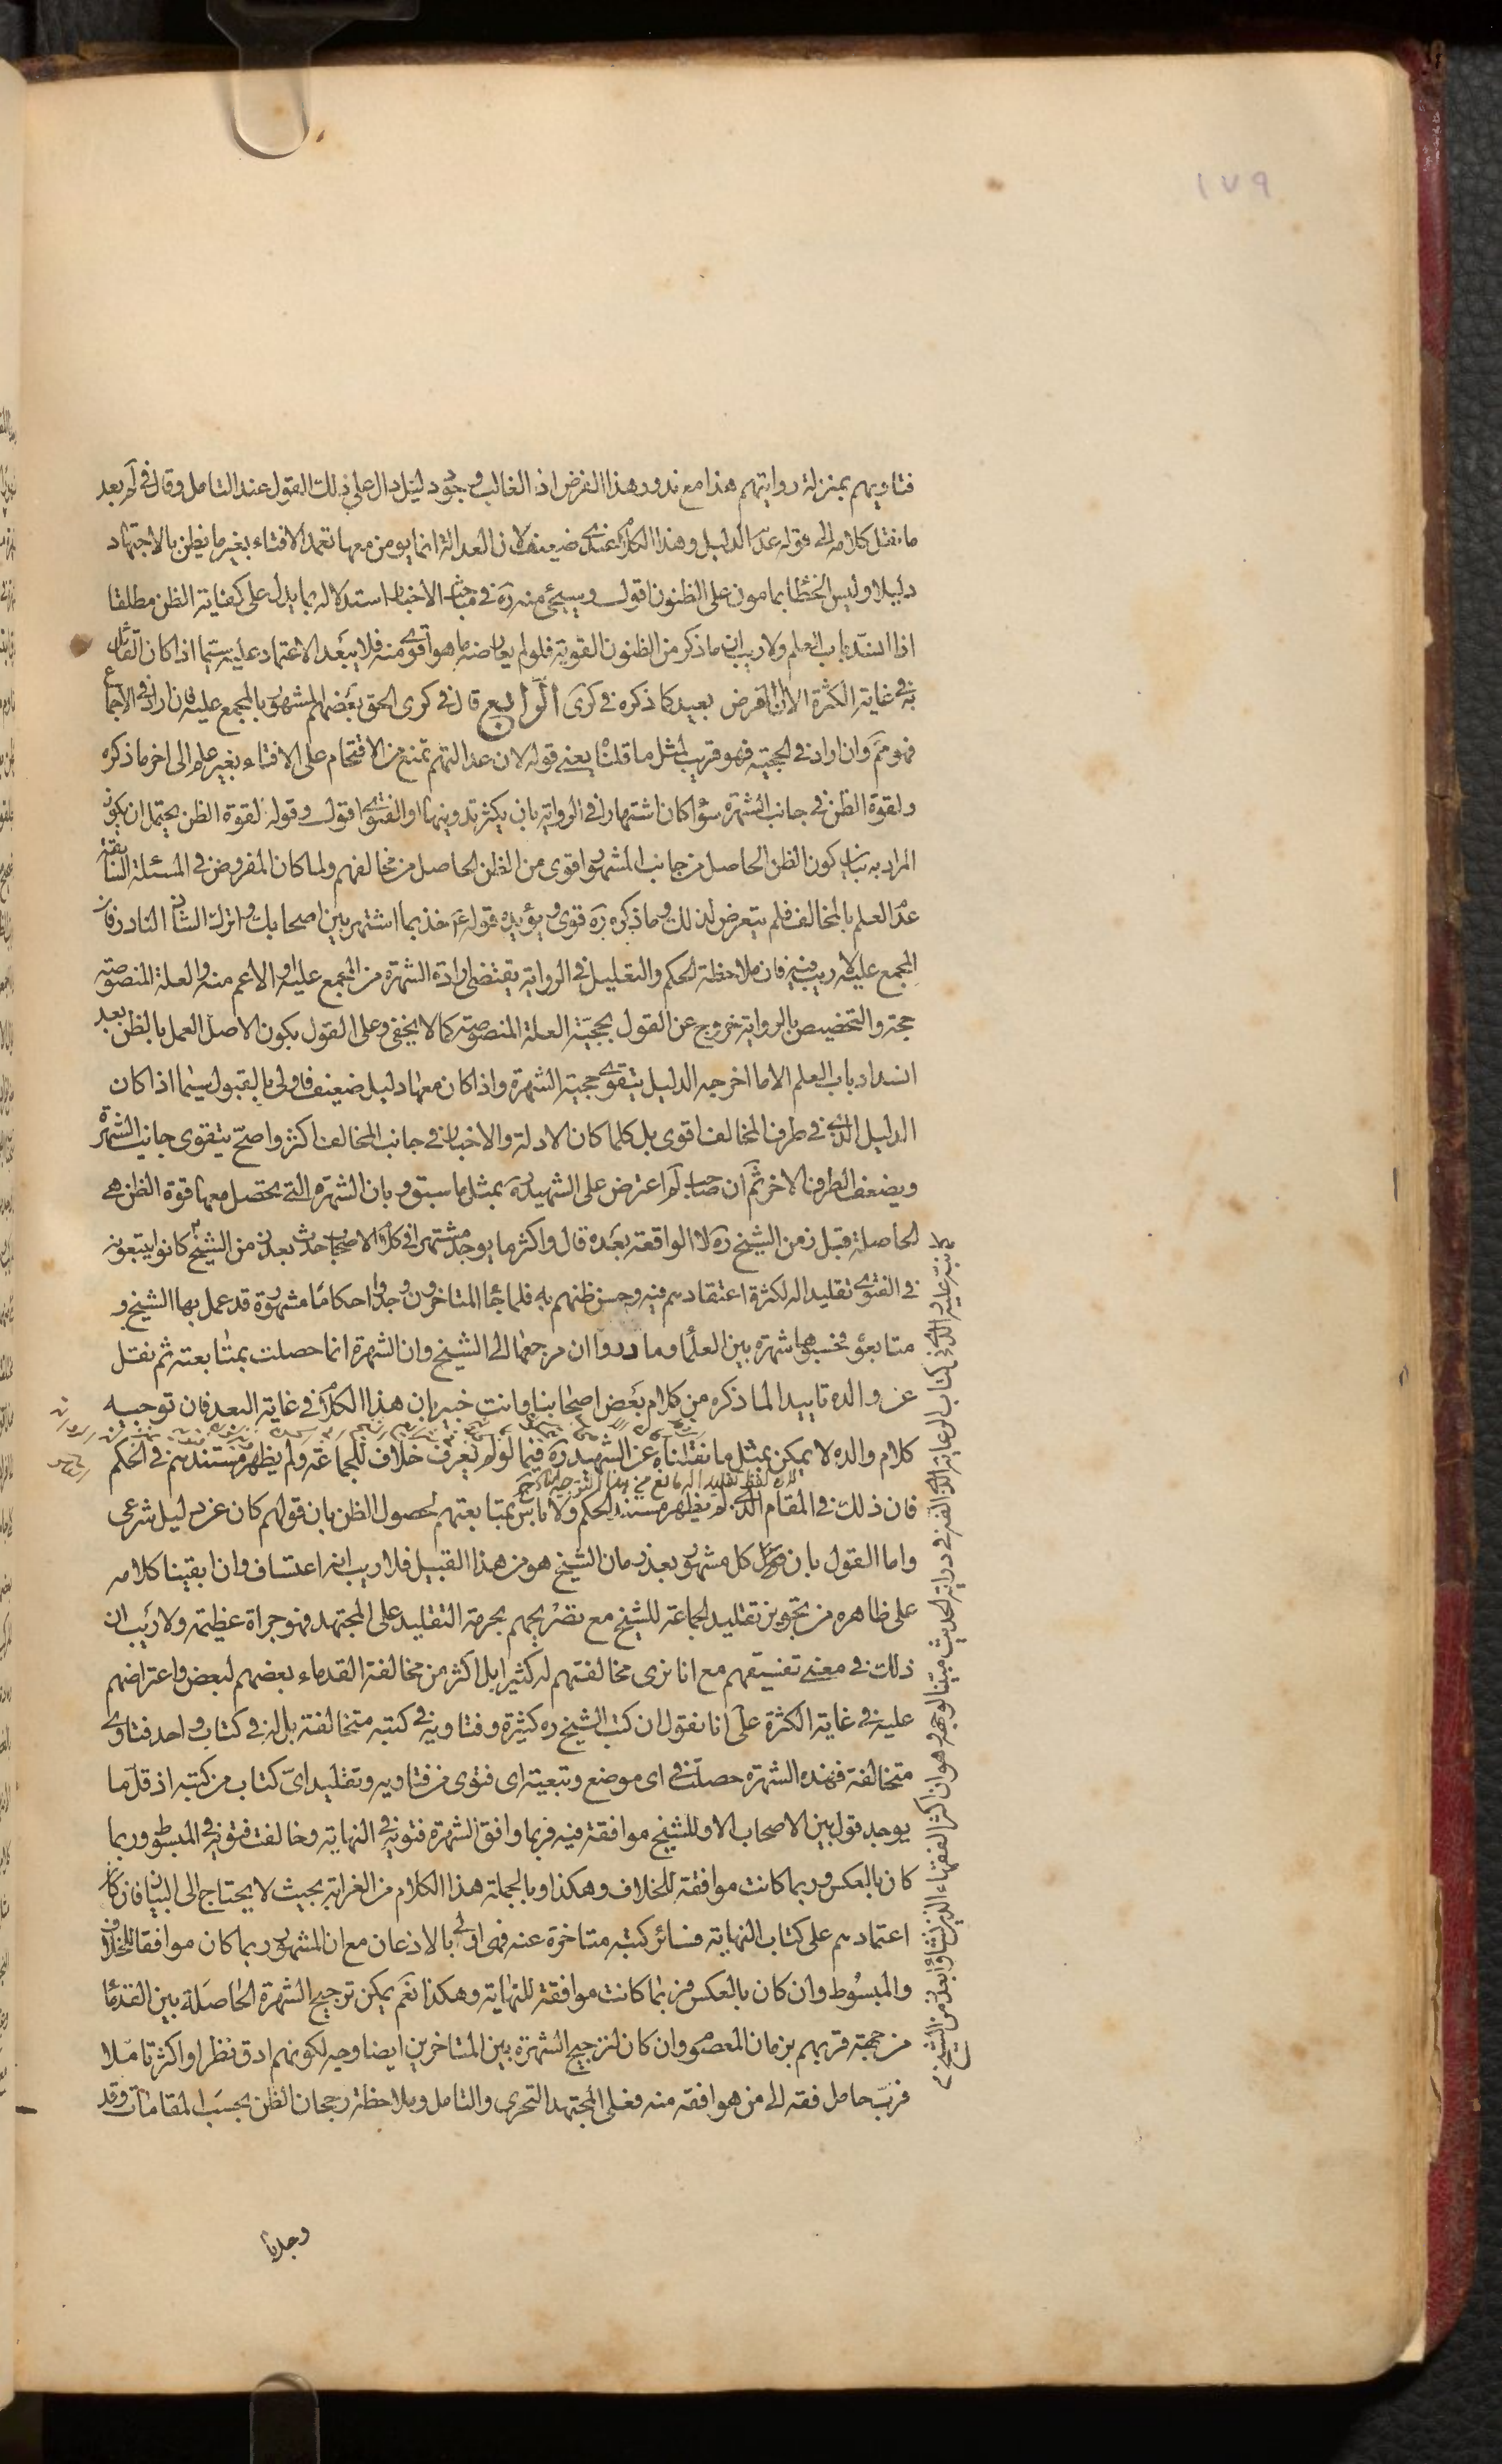 ١٧٩
فتاويهم بمنزلة روايتهم هذا مع ندور هذا الفرض اذ الغالب وجود دليل دال على ذلك القول عند التامل وقال في لم بعد
ما نقل كلامه الى قوله عدم الدليل وهذا الكلام عندي ضعيف لان العدالة انما يومن معها تعمد الافتاء بغير ما يظن بالاجتهاد
دليلا وليس الخطا بمامون على الظنون اقول وسيجئ منه ره في مباحث الاخبار استدلاله بما يدل على كفاية الظن مطلقا
اذا انسد باب العلم ولا ريب ان ما ذكر من الظنون القوية فلو لم يعارضه ما هو اقوى منه فلا يبعد الاعتماد عليه سيما اذا كان القائل
به في غاية الكثرة الا ان الفرض بعيد كما ذكره في كرى الرابع قال في كرى الحق بعضهم المشهور بالمجمع عليه فان اراد في الاجماع
فهو مم وان اراد في الحجية فهو قريب لمثل ما قلناه يعني قوله لان عدالتهم تمنع من الاقتحام على الافتاء بغير علم الى اخر ما ذكره
ولقوة الظن في جانب الشهرة سواء كان اشتهارا في الرواية بان يكثر تدوينها او الفتوى اقول وقوله لقوة الظن يحتمل ان يكون
المراد به بيان كون الظن الحاصل من جانب المشهور اقوى من الظن الحاصل من مخالفهم ولما كان المفروض في المسئلة السابقة
عدم العلم بالمخالف فلم يتعرض لذلك وما ذكره ره قوى ويؤيده قوله ع خذ بما اشتهر بين اصحابك واترك الشاذ النادر فان
المجمع عليه لا ريب فيه فان ملاحظة الحكم والتعليل في الرواية يقتضى ارادة الشهرة من المجمع عليه او الاعم منه والعلة المنصوصة
حجة والتخصيص بالرواية خروج عن القول بحجية العلة المنصوصة كما لا يخفى وعلى القول بكون الاصل العمل بالظن بعد
انسداد باب العلم الا ما اخرجه الدليل يتقوى حجية الشهرة واذا كان معها دليل ضعيف فاولى بالقبول سيما اذا كان
الدليل الذي في طرف المخالف اقوى بل كلما كان الادلة والاخبار في جانب المخالف اكثر واصح يتقوى جانب الشهرة
ويضعف الطرف الاخر ثم ان صاحب لم اعترض على الشهيد ره بمثل ما سبق وبان الشهرة التي يحصل معها قوة الظن هي
الحاصلة قبل زمن الشيخ ره لا الواقعة بعده قال واكثر ما يوجد مشتهرا في كلام الاصحاب حدث بعد زمن الشيخ كانوا يتبعونه
في الفتوى تقليدا له لكثرة اعتقادهم فيه وحسن ظنهم به فلما جاء المتاخرون وجدوا احكاما مشهورة قد عمل بها الشيخ و
متابعوه فحسبوها شهرة بين العلماء وما دروا ان مرجعها الى الشيخ وان الشهرة انما حصلت بمتابعته ثم نقل
عن والده تاييدا لما ذكره من كلام بعض اصحابنا وانت خبير بان هذا الكلام في غاية البعد فان توجيه
كلام والده لا يمكن بمثل ما نقلناه عن الشهيد ره فيما لو لم يعرف خلاف للجماعة ولم يظهر مستندهم في الحكم
لان لفظ تقليدا له مانع من هذا التوجيه
فان ذلك في المقام الذي لم يظهر مستند الحكم ولا باس بمتابعتهم لحصول الظن بان قولهم كان عن دليل شرعي
واما القول بان كل مشهور بعد زمان الشيخ هو من هذا القبيل فلا ريب انه اعتساف وان ابقينا كلامه
على ظاهره من تجويز تقليد الجماعة للشيخ مع تصريحهم بحرمة التقليد على المجتهد فهو جراة عظيمة ولا ريب ان
ذلك في معنى تفسيقهم مع انا نرى مخالفتهم له كثيرا بل اكثر من مخالفة القدماء بعضهم لبعض واعتراضهم
عليه في غاية الكثرة على انا نقول ان كتب الشيخ ره كثيرة وفتاويه في كتبه متخالفة بل له في كتاب واحد فتاوى
متخالفة فهذه الشهرة حصلت في اى موضع وتبعية اى فتوى من فتاويه وتقليد اى كتاب من كتبه اذ قل ما
يوجد قول بين الاصحاب الا وللشيخ موافقة فيه فربما وافق الشهرة فتويه في النهاية وخالفت فتويه في المبسوط وربما
كان بالعكس وربما كانت موافقة للخلاف وهكذا وبالجملة هذا الكلام من الغرابة بحيث لا يحتاج الى البيان فان كان
اعتمادهم على كتاب النهاية فسائر كتبه متاخرة عنه فهى اولى بالاذعان مع ان المشهور ربما كان موافقا للخلاف
والمبسوط وان كان بالعكس فربما كانت موافقة للنهاية وهكذا نعم يمكن ترجيح الشهرة الحاصلة بين القدماء
من جهة قربهم بزمان المعصوم وان كان لترجيح الشهرة بين المتاخرين ايضا وجه لكونهم ادق نظرا واكثر تاملا
فرب حامل فقه الى من هو افقه منه فعلى المجتهد التحرى والتامل وملاحظة رجحان الظن بحسب المقامات وقد
وجدنا
نبه عليه والدي في كتاب الرعاية الذي الفه في دراية الحديث مبينا لوجهه وهو ان اكثر الفقهاء الذين نشاوا بعد زمن الشيخ